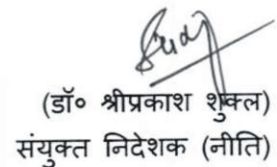 (डॉ० श्रीप्रकाश शुक्ल)
संयुक्त निदेशक (नीति)